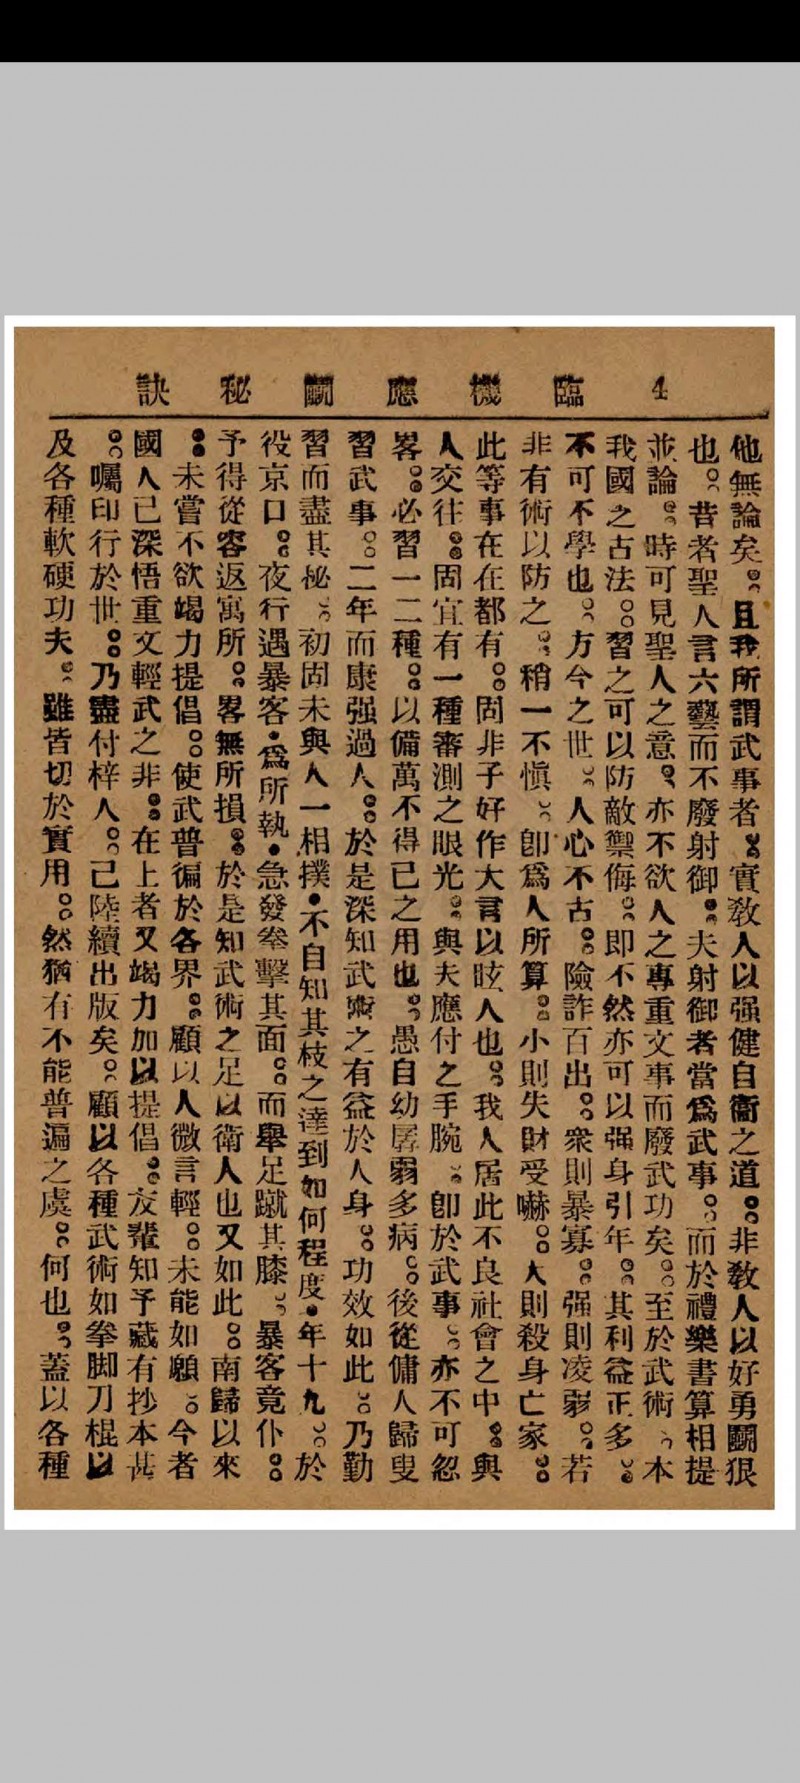 4 臨機應鬭秘訣
他無論矣。且我所謂武事者。實教人以强健自衞之道。非教人以好勇鬭狠
也。昔者聖人言六藝而不廢射御。夫射御者當爲武事。而於禮樂書算相提
並論。時可見聖人之意。亦不欲人之專重文事而廢武功矣。至於武術、本
我國之古法。習之可以防敵禦侮。即不然亦可以强身引年。其利益正多。
不可不學也。方今之世。人心不古。險詐百出。衆則暴寡。强則凌弱。若
非有術以防之。稍一不愼。卽爲人所算。小則失財受嚇。大則殺身亡家。
此等事在在都有。固非子好作大言以眩人也。我人居此不良社會之中。與
人交往。固宜有一種審測之眼光。與夫應付之手腕。卽於武事。亦不可忽
畧。必習一二種。以備萬不得已之用也。愚自幼孱弱多病。後從傭人歸叟
習武事。二年而康强過人。於是深知武術之有益於人身。功效如此。乃勤
習而盡其秘。初固未與人一相撲。不自知其枝之達到如何程度。年十九。於
役京口。夜行遇暴客。爲所執。急發拳擊其面。而舉足蹴其膝。暴客竟仆。
予得從容返寓所。畧無所損。於是知武術之足以衛人也又如此。南歸以來
。未嘗不欲竭力提倡。使武普徧於各界。顧以人微言輕。未能如願。今者
國人已深悟重文輕武之非。在上者又竭力加以提倡。友輩知予藏有抄本甚
。囑印行於世。乃盡付梓人。己陸續出版矣。顧以各種武術如拳脚刀棍以
及各種軟硬功夫。雖皆切於實用。然猶有不能普遍之虞。何也。蓋以各種